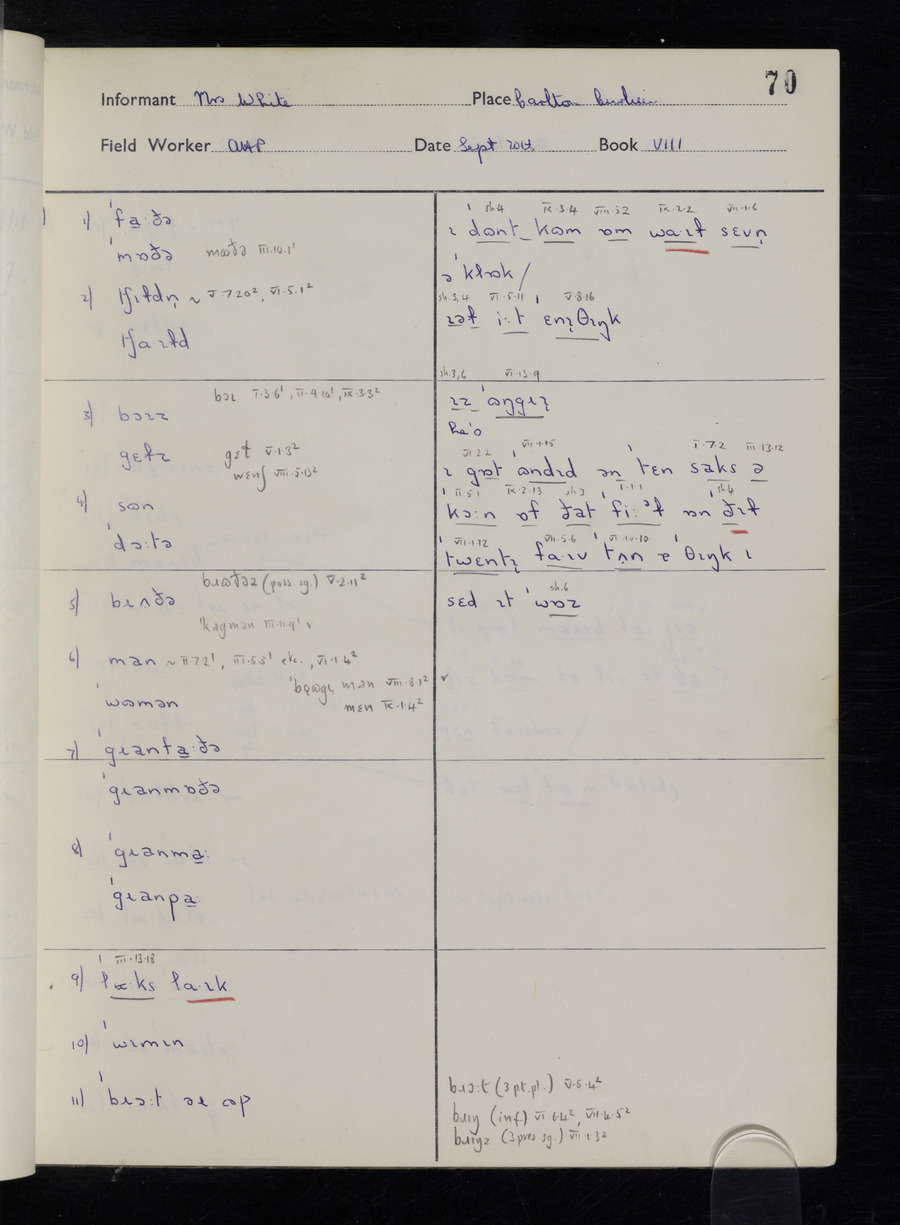 70
Informant Mrs White Place Carlton
Field Worker Date Sept Book VIII
1) ˈfa̱:ðə
ˈmɒðə mɷðə III.10.1¹
2) tʃɪɫdn̩ ~ V.7.20², VI.5.1²
tʃaɪɫd
3) bɔɪz bɔɪ I.3.6¹, II.9.10¹, IX.3.3²
gɛɫz gɛɫ V.1.3²
wɛnʃ VIII.5.13²
4) sɷn
ˈdɔ:tə
5) bɹʌðə bɹɷðəz (poss. sg.) V.2.11²
ˈkagmən III.11.9¹ v
6) man ~ II.7.2¹, III.5.5¹ etc., VI.1.4²
ˈwɷmən man VIII.3.1² v
mɛn IX.1.4²
7) ˈgɹanfa̱:ðə
ˈgɹanmɒðə
8) ˈgɹanma̱:
ˈgɹanpa̱:
III.13.18
9) lɷ:ks laɪk
10) ˈwɪmɪn
11) ˈbɹɔ:t əɹ ɷp
sh.4 IX.3.4 VIII.2 IX.2.2 VII.1.6
ɪ dɷnt kɷm ɒm waɪɫ sɛvn̩
əˈklɒk /
sh.3,4 VI.5.11 V.8.16
ɪəɫ i:t ɛnɪθɪŋk
sh.3,6 VI.13.9
ɪz ˈɷŋgɪɪ
he's
VI.2.2 VII.1.15 I.7.2 III.13.12
ɪ gɒt ˈɷndɹd ən ˈtɛn saks ə
II.5.1 IX.2.13 sh.3 I.1.1 sh.4
ˈkɔ:n ɒf ðat ˈfi:əɫ ɒn ðɪɫ
VII.1.12 VII.5.6 VI.10.10
ˈtwɛntɪ faɪv ˈtʌn ə ˈθɪŋk ɪ
sh.6
sɛd ɪt ˈwɒz
bɹɔ:t (3 pt. pl.) V.5.4²
bɹɪŋ (inf.) VI.6.4², VII.4.5²
bɹɪŋz (3 pres sg.) VII.1.3²